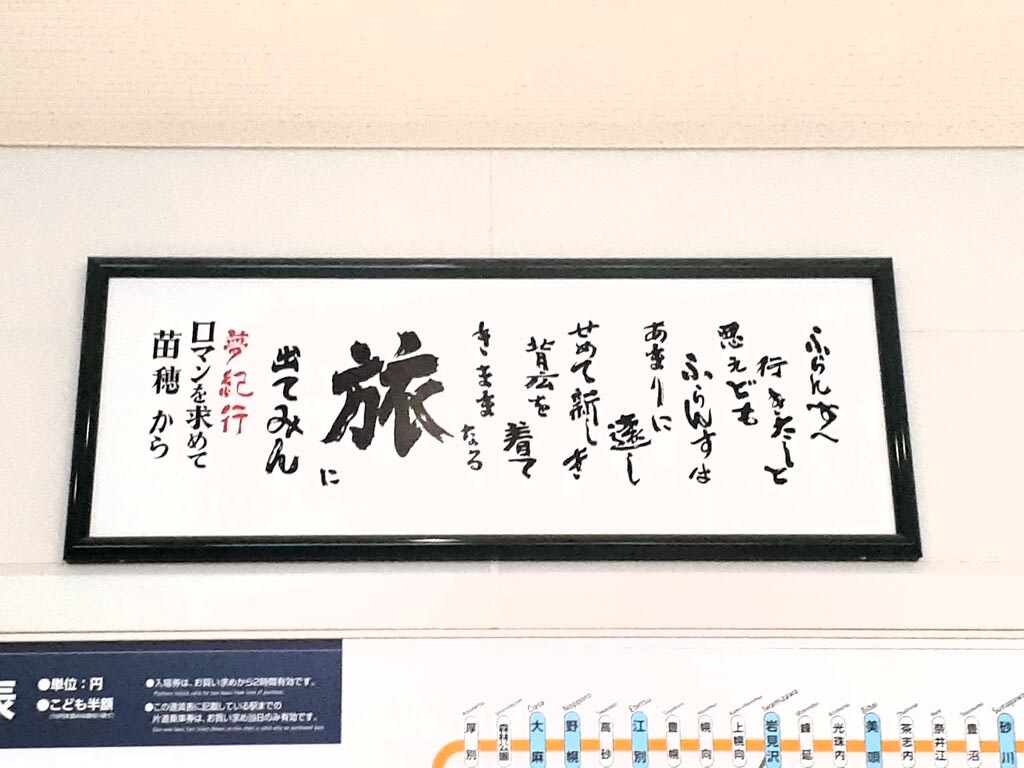 ふらんすへ
行きたしと
思えども
ふらんすは
あまりに
遠し
せめて新しき
背広を
着て
きままなる
旅に
出てみん
夢紀行
ロマンを求めて
苗穂から
表
●単位：円
●こども半額
●入場券は、お買い求めから2時間有効です。
●この運賃表に記載している駅までの
片道乗車券は、お買い求め当日のみ有効です。
厚別
森林公園
大麻
野幌
高砂
江別
豊幌
幌向
上幌向
岩見沢
峰延
光珠内
美唄
茶志内
奈井江
豊沼
砂川